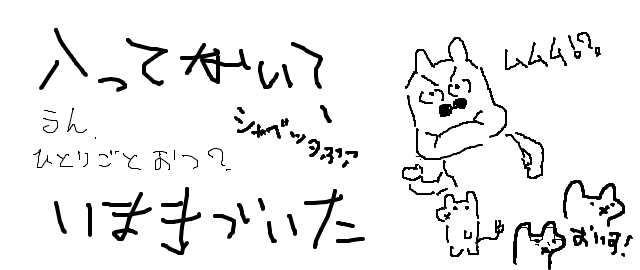 入ってないて
うん、
ひとりごとおつ?
シャベッタぁぁ?
いまきづいた
ムムム!?
おいす!